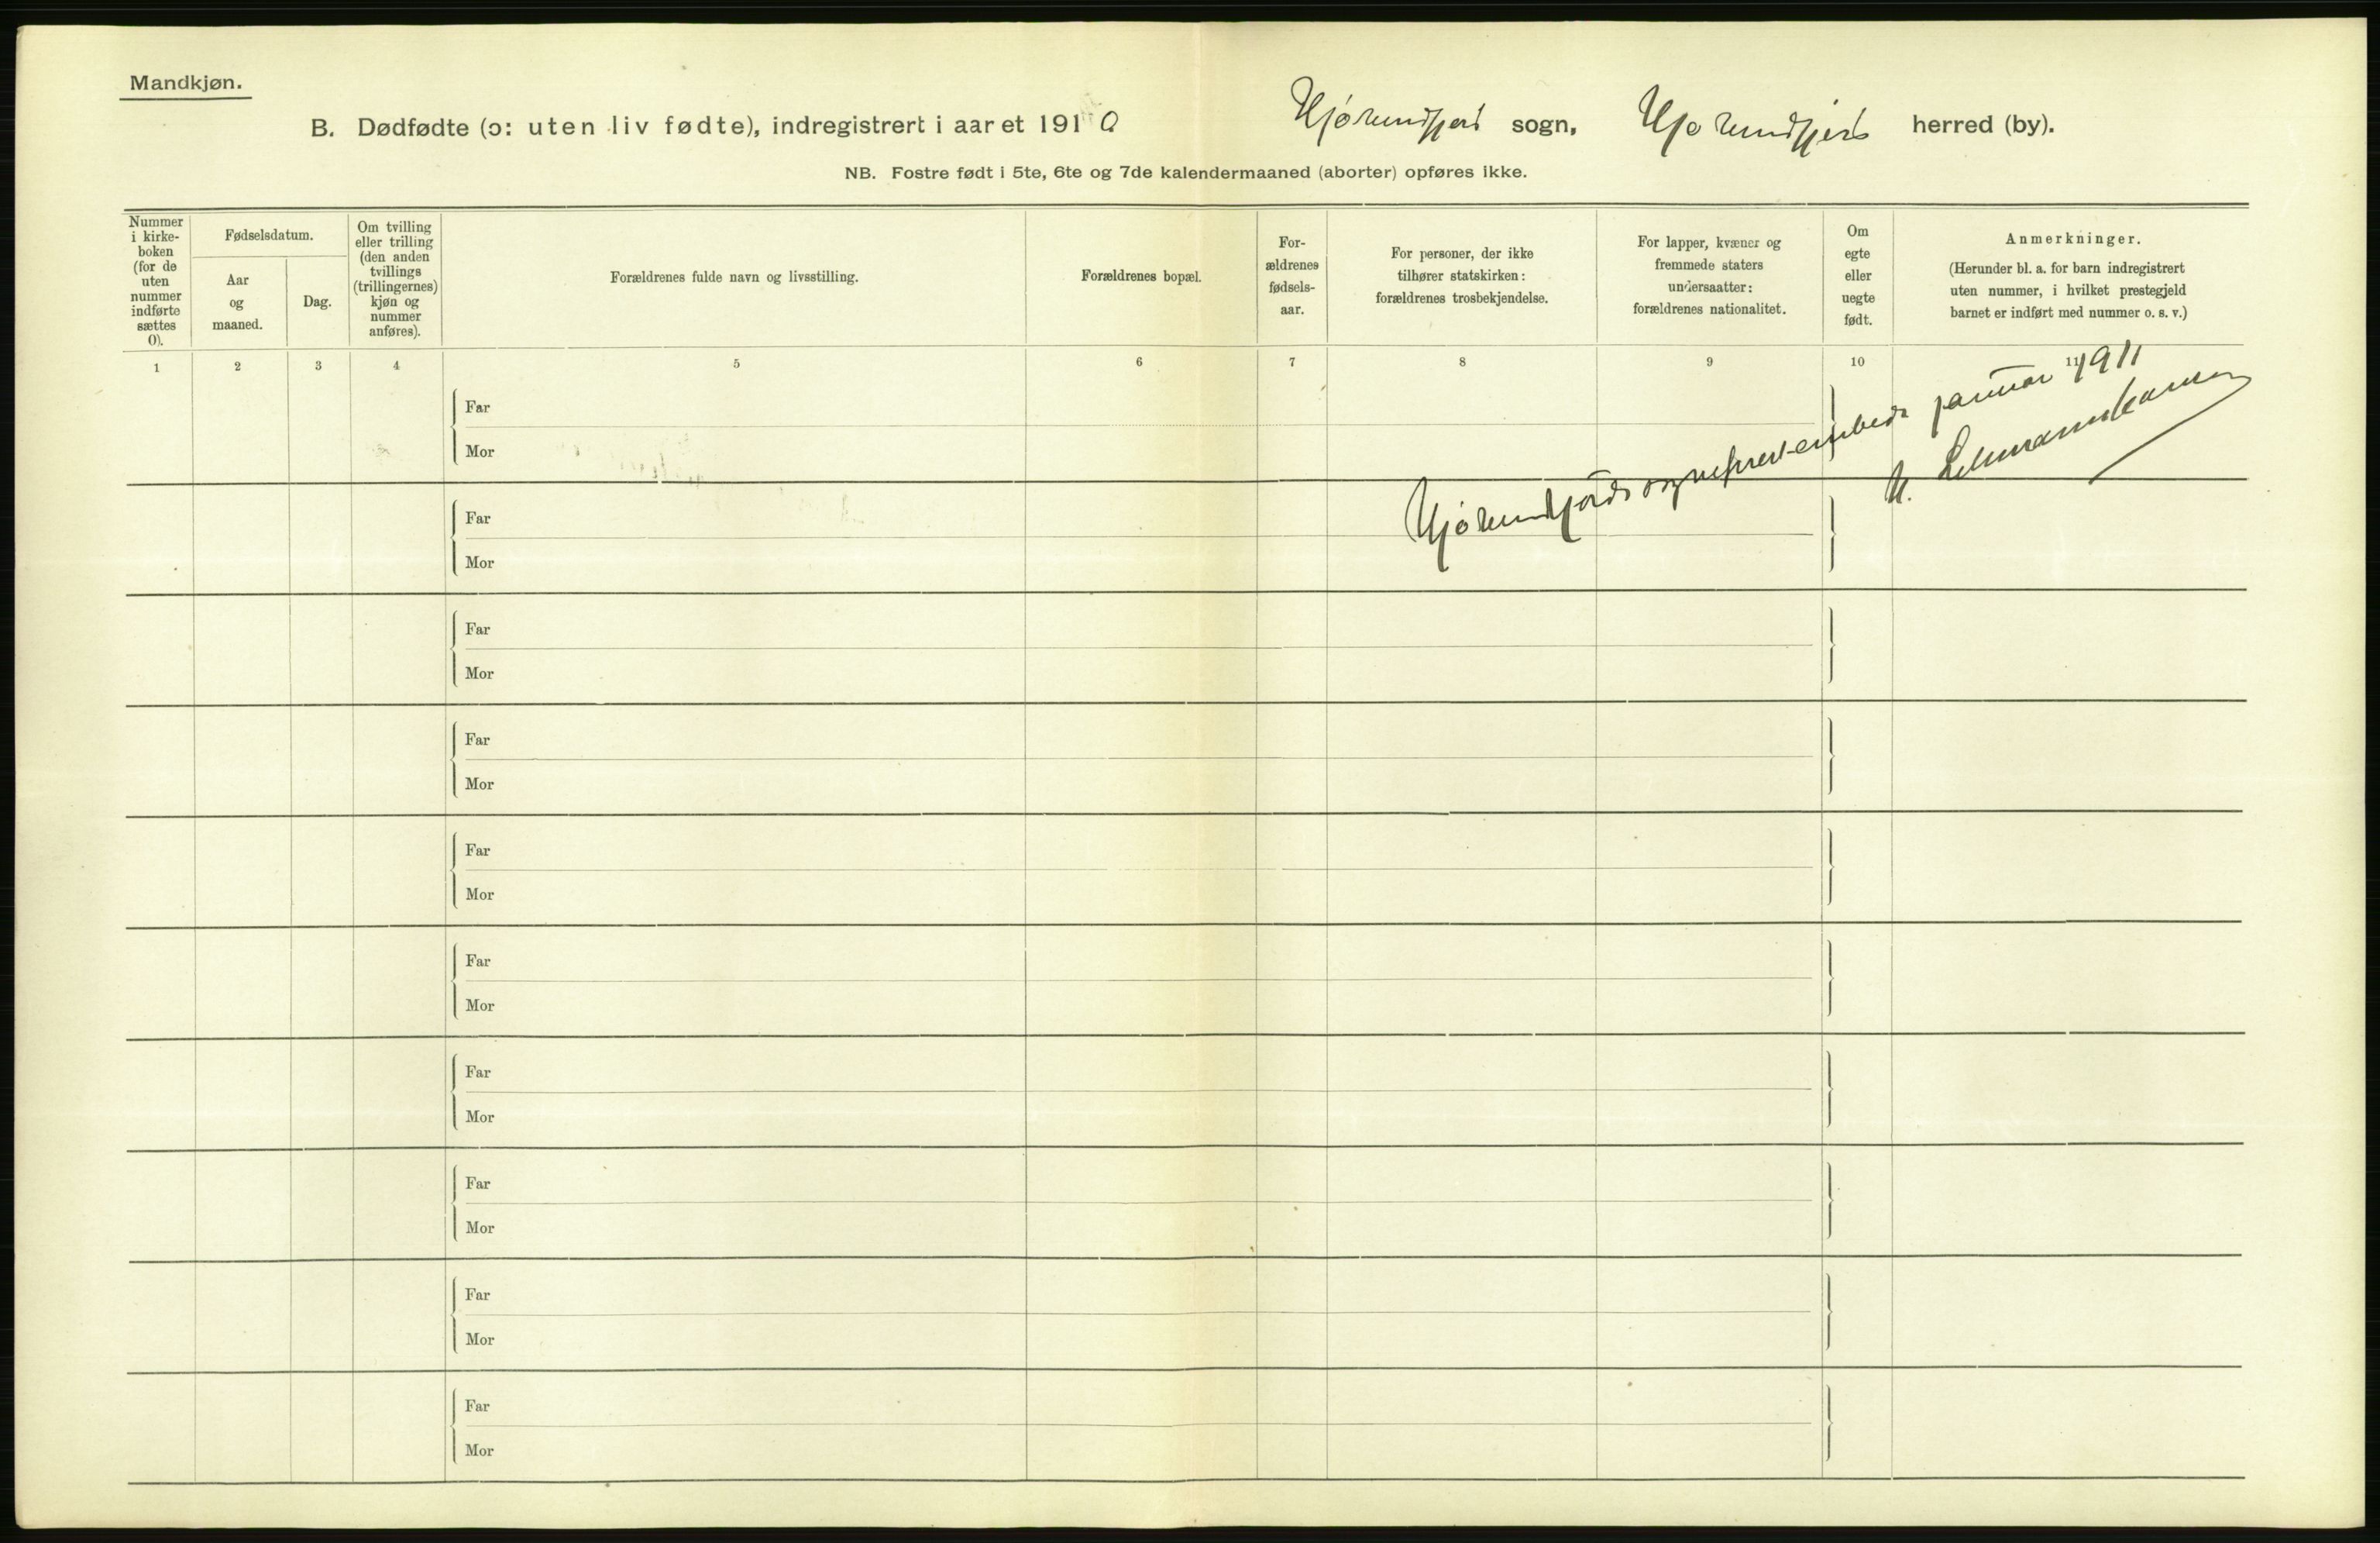 Mandkjøn.
B. Dødfødte (ɔ: uten liv fødte), indregistrert i aaret 1910 Hjørundfjord sogn, Hjørundfjord herred (by).
NB. Fostre født i 5te, 6te og 7de kalendermaaned (aborter) opføres ikke.
Nummer
i kirke-
boken
(for de
uten
nummer
indførte
sættes
0).
Fødselsdatum.
Aar
og
maaned.
Dag.
Om tvilling
eller trilling
(den anden
tvillings
(trillingernes)
kjøn og
nummer
anføres).
Forældrenes fulde navn og livsstilling.
Forældrenes bopæl.
For-
ældrenes
fødsels-
aar.
For personer, der ikke
tilhører statskirken:
forældrenes trosbekjendelse.
For lapper, kvæner og
fremmede staters
undersaatter:
forældrenes nationalitet.
Om
egte
eller
uegte
født.
Anmerkninger.
(Herunder bl. a. for barn indregistrert
uten nummer, i hvilket prestegjeld
barnet er indført med nummer o. s. v.)
1 2 3 4 5 6 7 8 9 10 11
Hjørundfjords sogneprestembede januar 1911
Far
Mor
Far
Mor
Far
Mor
Far
Mor
Far
Mor
Far
Mor
Far
Mor
Far
Mor
Far
Mor
Far
Mor